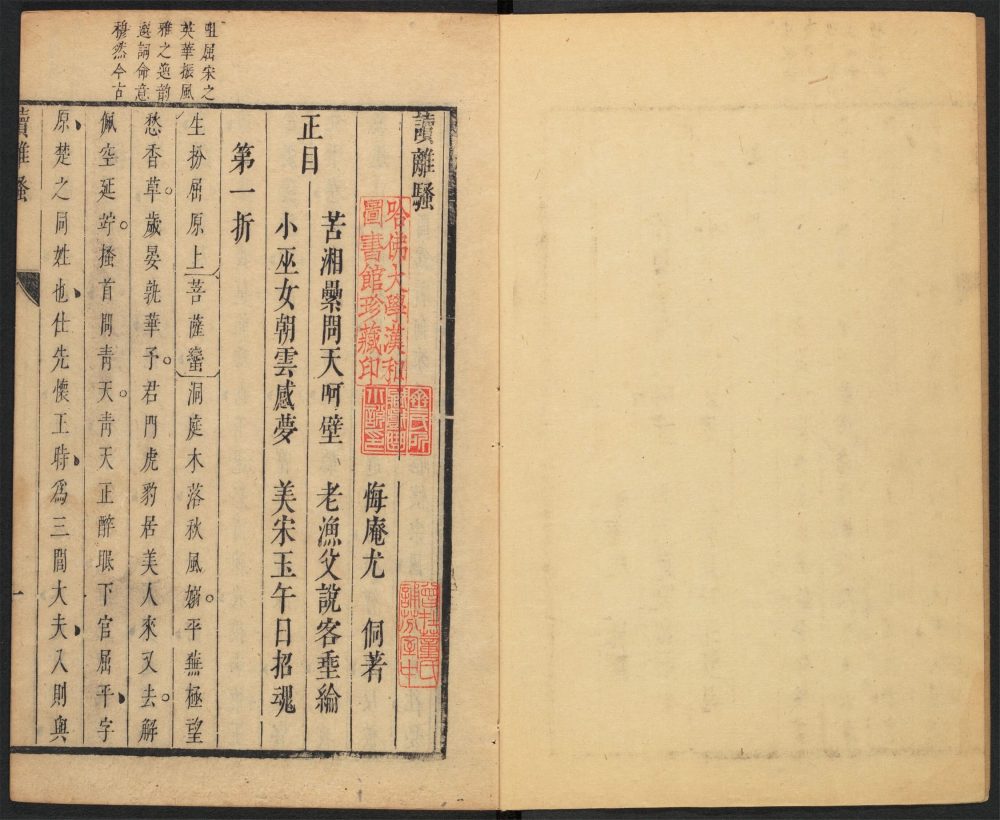 咀屈宋之
英華振風
雅之逸韵
選詞命意
穆然今古
讀離騷
悔庵尤 侗著
正目
苦湘纍問天呵壁 老漁父說客垂綸
小巫女朝雲感夢 美宋玉午日招魂
第一折
生扮屈原上菩薩蠻洞庭木落秋風嫋。平蕪極望
愁香草。歲晏孰華予。君門虎豹居美人來又去。解
佩空延竚。搔首問青天。青天正醉眠下官屈平、字
原楚之同姓也、仕先懷王時、爲三閭大夫、入則與
讀離騷
一
哈佛大學漢和
圖書館珍藏印